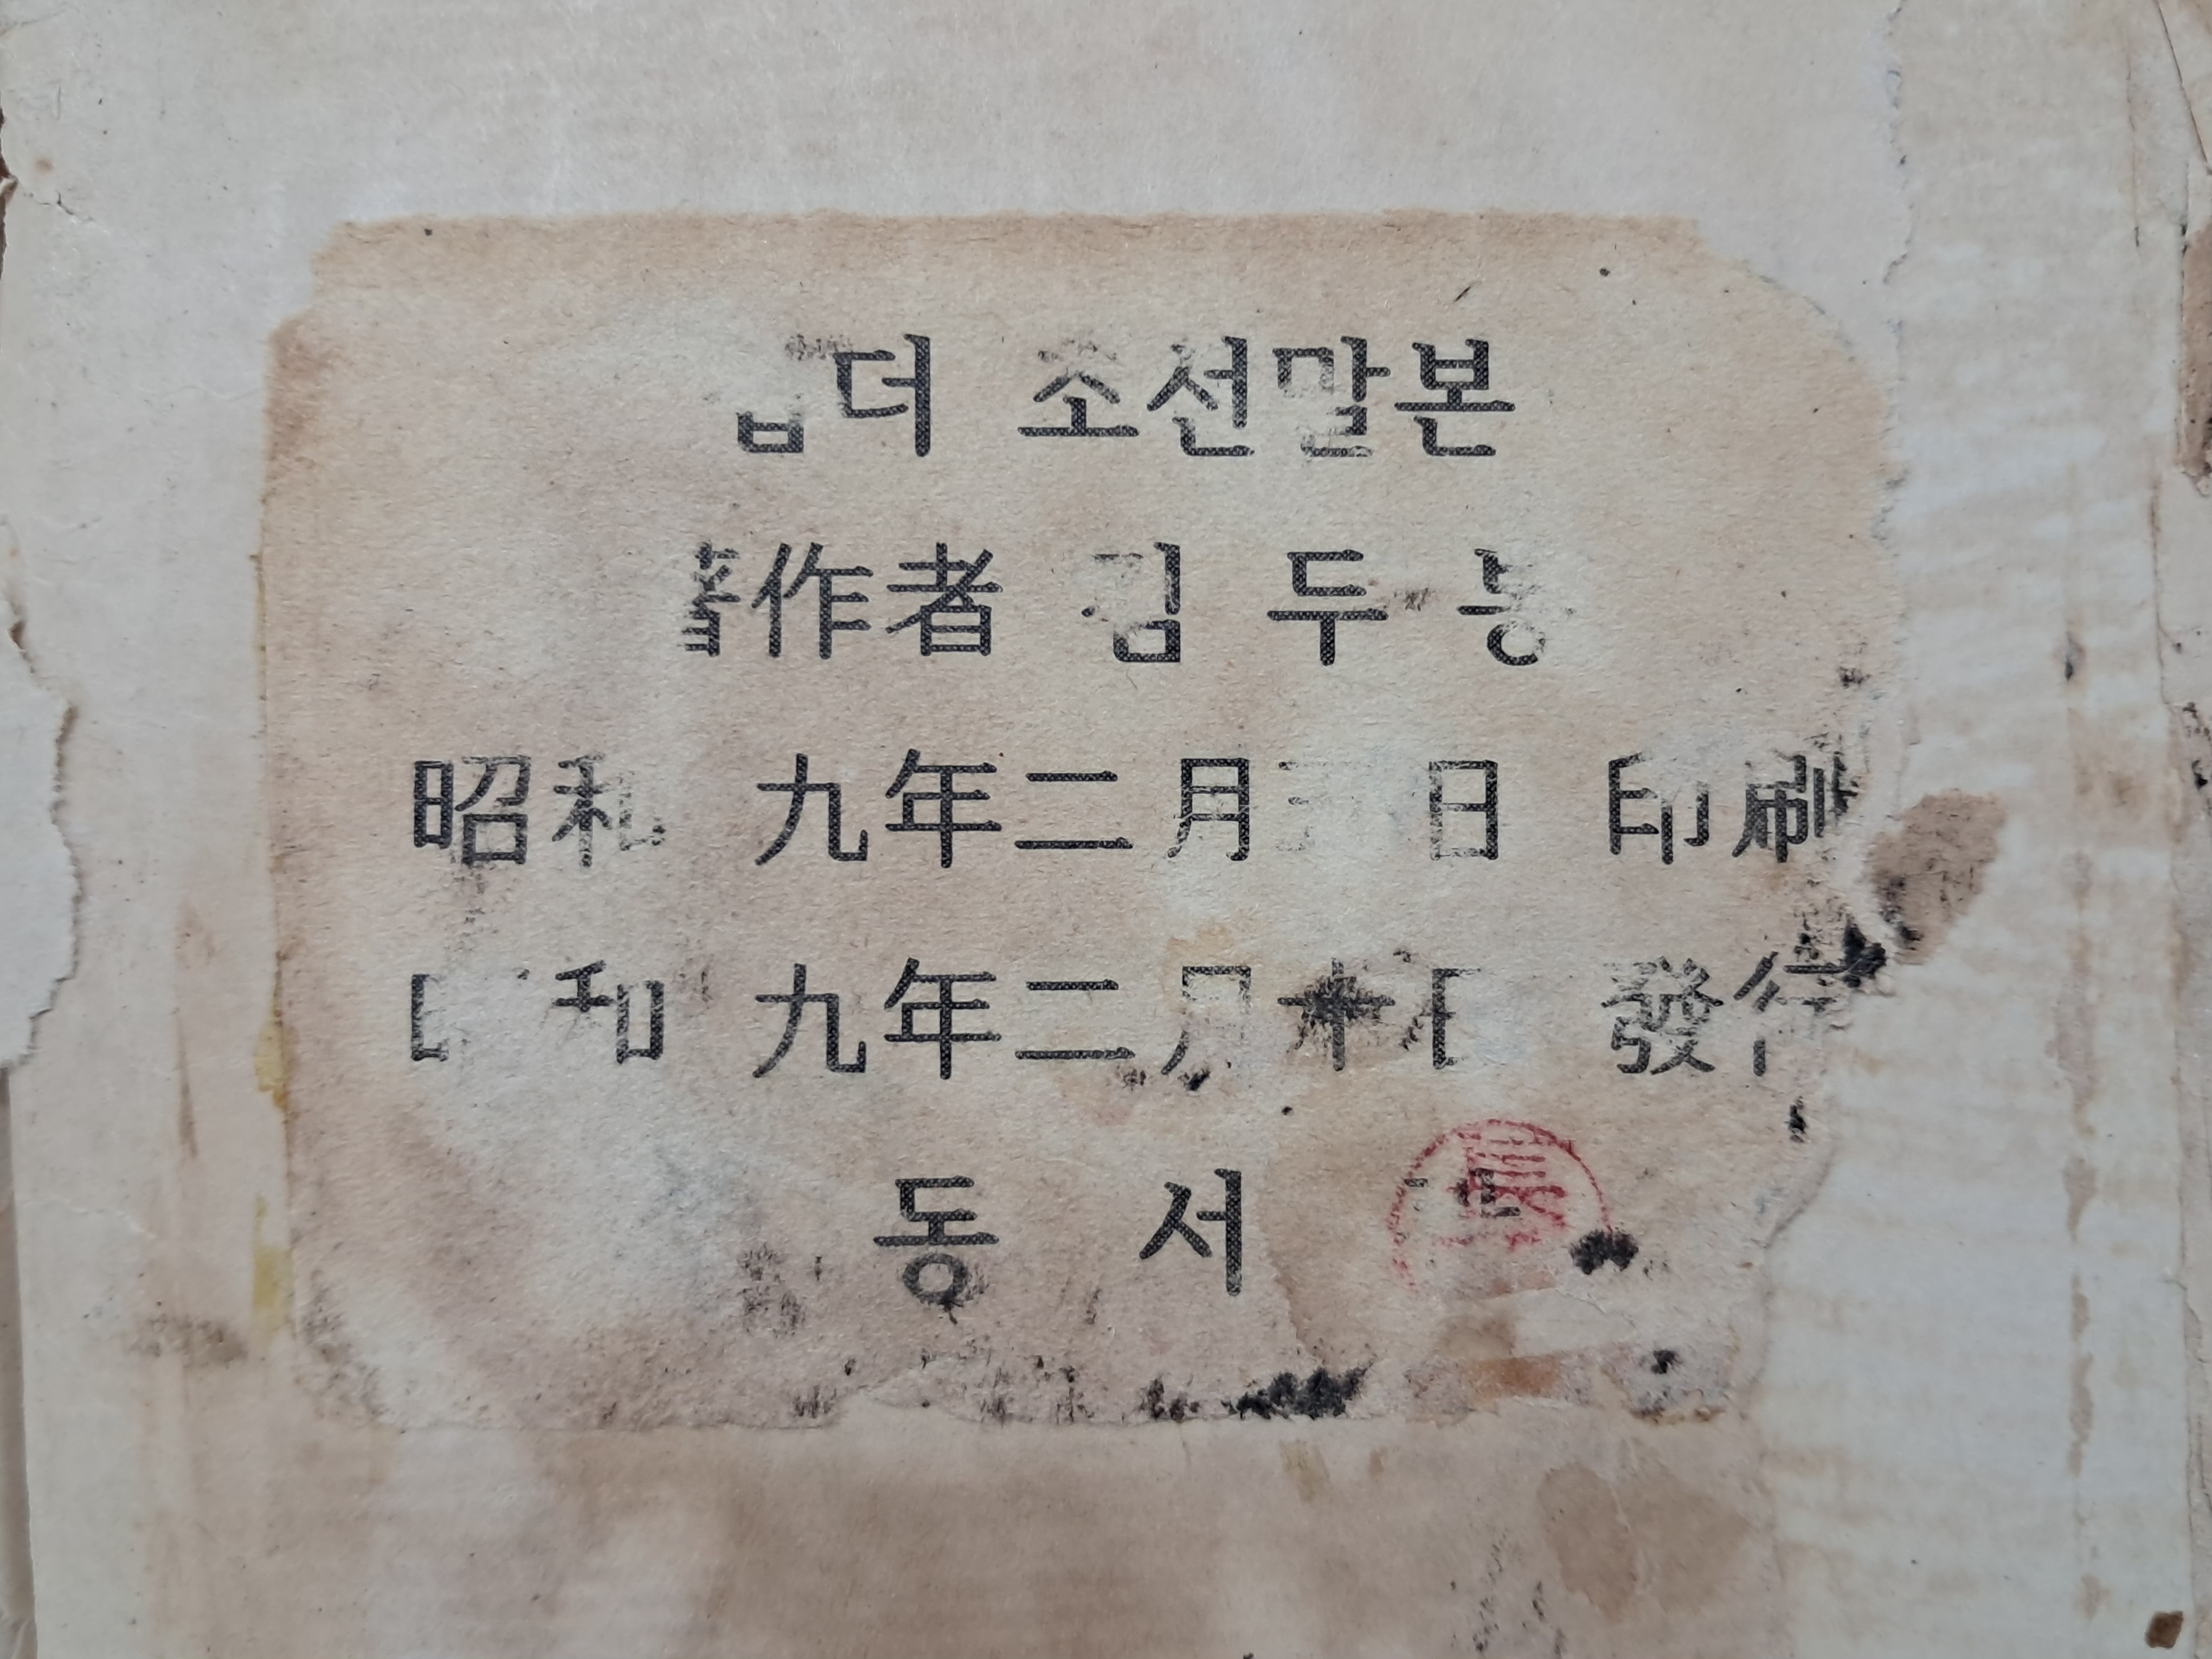 더 조선말본
著作者 김 두
昭和 九年二月 日 印刷
和 九年二月十日 發行
동 서